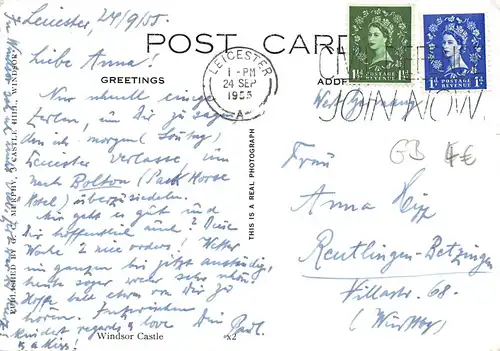 Leicester, 24/9/55.
POST CARD
Liebe Anna!
GREETINGS
ADDR
LEICESTER
1 - PM
24 SEP
1955
A
JOIN NOW
1½d POSTAGE REVENUE 1½d
1d POSTAGE REVENUE 1d
West Germany
Nur schnell einige
Zeilen, um Dir zu sagen
dass ich morgen, Sonntag,
Leicester verlasse, um
nach Bolton (Pack Horse
Hotel) überzusiedeln.
Mir geht es gut und
Dir hoffentlich auch? Diese
Woche 2 nice orders! Wetter
im ganzen bis jetzt anständig,
heute sogar wieder sehr schön
Hoffe bald etwas von Dir zu
hören. Inzwischen
kindest regards & love Dein Paul.
& a Kiss!
PUBLISHED BY G. C. MURPHY, 3 CASTLE HILL, WINDSOR
THIS IS A REAL PHOTOGRAPH
GB 4€
Frau
Anna Hipp
Reutlingen-Betzingen
Villastr. 68.
(Württbg)
Windsor Castle x2